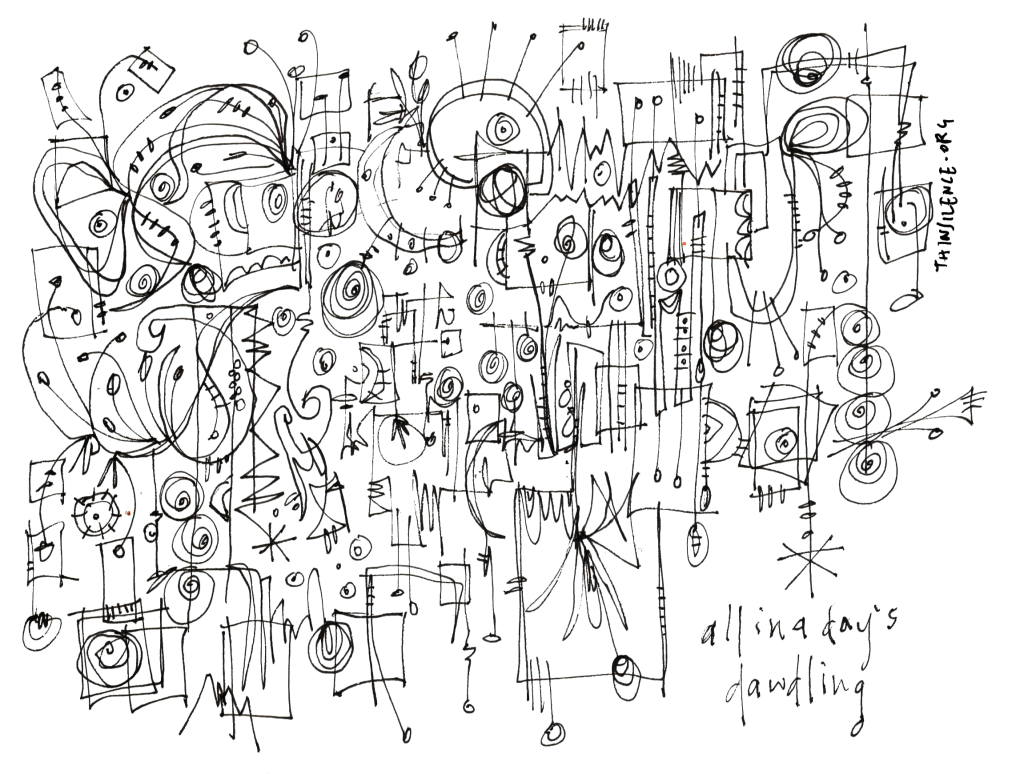 THINSILENCE.ORG
all in a day's
dawdling